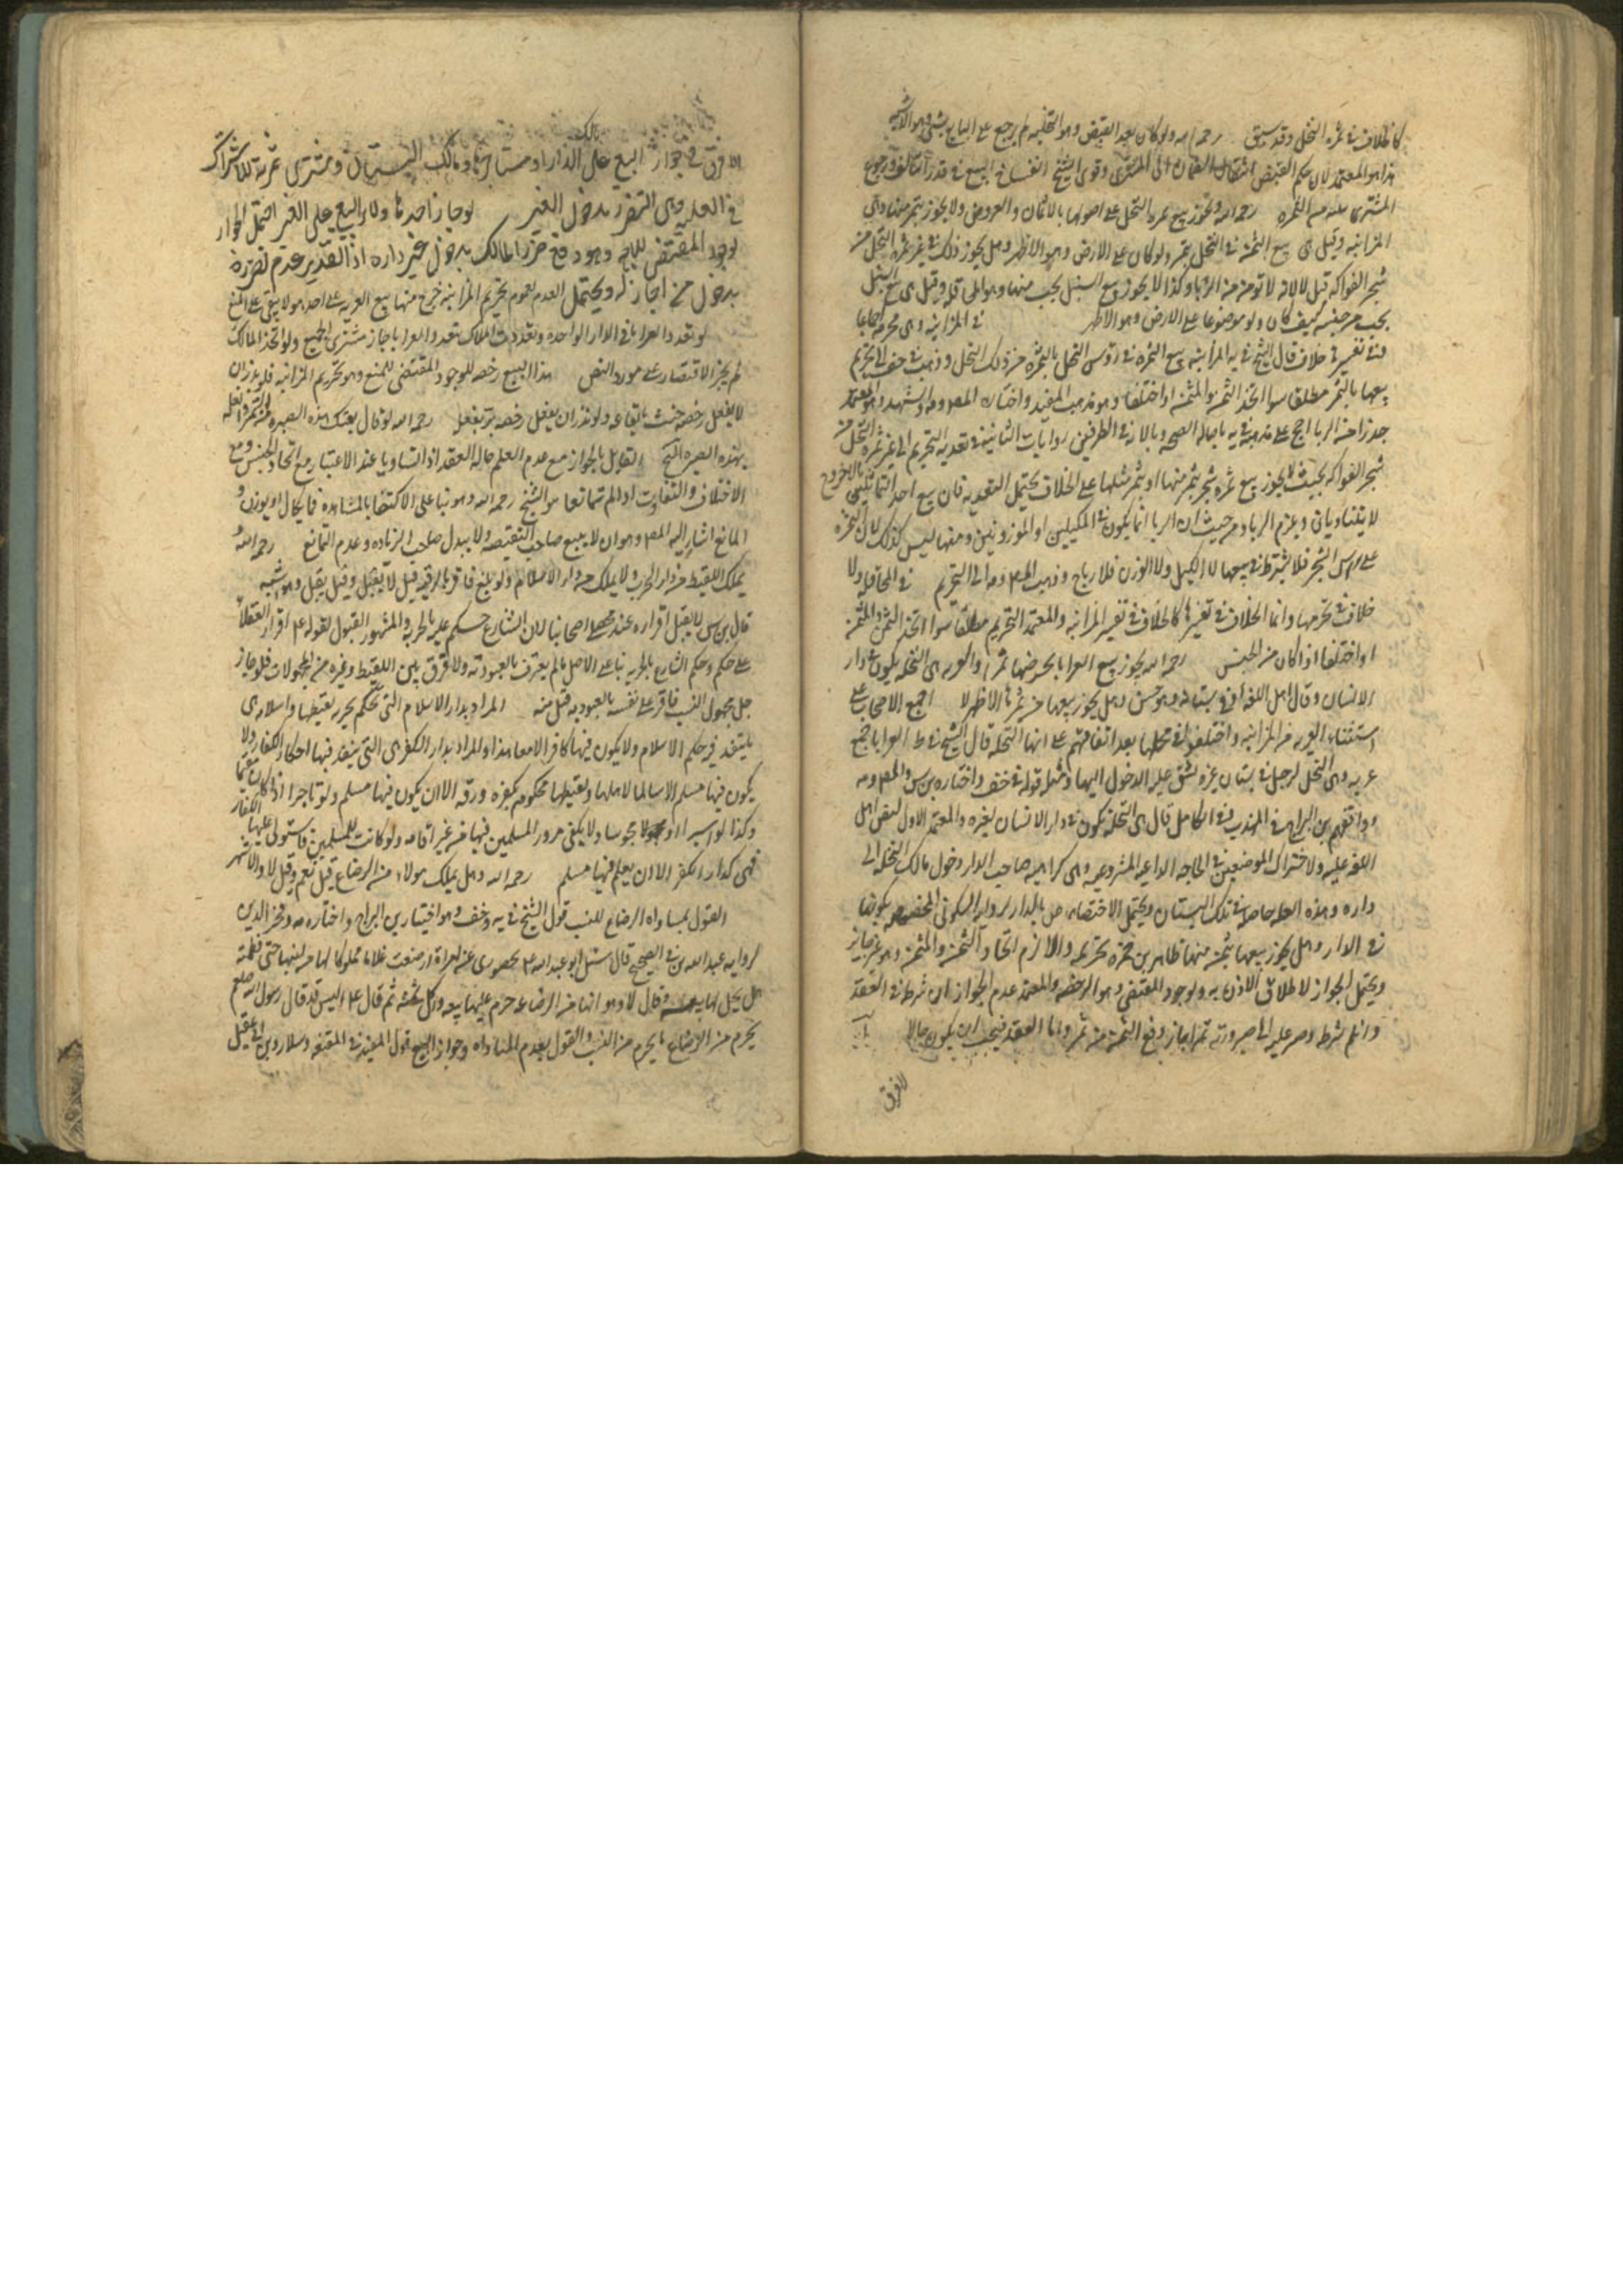 كالخلاف في ثمرة النخل وقد سبق رحمه الله ولو كان بعد القبض وهو التخليه لم يرجع على البايع بشي وهو الاشبه
هذا هو المعتمد لان حكم القبض انتقال الضمان الى المشتري وقوى الشيخ انفساخ البيع في قدر التالف ورجوع
المشتري رحمه الله ولا يجوز بيع ثمرة النخل على اصولها بالاثمان والعروض ولا يجوز بثمر منها وهي
المزابنه وقيل هي بيع الثمرة في النخل بتمر ولو كان على الارض وهو الاظهر وهل يجوز ذلك في غير ثمرة النخل من
شجر الفواكه قيل لا لانه لا يؤمن من الربا وكذا لا يجوز بيع السنبل بحب منها وهو المحاقله وقيل هي بيع السنبل
بحب من جنسه كيف كان ولو موضوعا على الارض وهو الاظهر في المزابنه وهي محرمه اجماعا
وفي تفسيرها خلاف قال الشيخ في يه المزابنه بيع الثمرة في رؤس النخل بالثمرة من ذلك النخل وذهب في خف الى تحريم
بيعها بالتمر مطلقا سوا اتحد الثمن والمثمن او اختلفا وهو مذهب المفيد واختاره المص والشهيد وهو المعتمد
حذرا من الربا احتج على مذهبه في يه باصالة الصحه وبالا في الطرفين روايات الثانيه في تعديه التحريم الى غير ثمرة النخل من
شجر الفواكه بحيث لا يجوز بيع ثمرة شجر بثمر منها او بثمر مثلها على الخلاف يحتمل التعديه فان بيع احد المتماثلين بالاخر
لا يتساويان ويلزم الربا ومن حيث ان الربا انما يكون في المكيلين او الموزونين ومنها ليس كذلك لان الثمرة
على راس الشجر فلا يشترط في بيعها لا الكيل ولا الوزن فلا ربا وذهب المص الى التحريم في المحاقله ولا
خلاف في تحريمها وانما الخلاف في تفسيرها كالخلاف في تفسير المزابنه والمعتمد التحريم مطلقا سوا اتحد الثمن والمثمن
او اختلفا اذا كان من الجنس رحمه الله يجوز بيع العرايا بخرصها تمرا والعريه هي النخله يكون في دار
الانسان وقال اهل اللغه او في بستانه وهو حسن وهل يجوز بيعها من ثمرها الاظهر لا اجمع الاصحاب على
استثناء العريه من المزابنه واختلفوا في محلها بعد اتفاقهم على انها النخله قال الشيخ في ط العرايا جمع
عريه وهي النخل لرجل في بستان غيره يشق عليه الدخول اليها ومثله قوله في خف واختاره بن س والمص
ووافقهم بن البراج في المهذب وفي الكامل قال هي النخله تكون في دار الانسان لغيره والمعتمد الاول لنص اهل
اللغه عليه ولاشتراك الموضعين في الحاجه الداعيه المشروعيه وهي كراهيه صاحب الدار دخول مالك النخله الى
داره وهذه العله حاصله في تلك البستان ويحتمل الاختصاص بالدار لروايه السكوني المخصصه بكونها
في الدار وهل يجوز بيعها بثمن منها ظاهر بن حمزه تحريمه والا لزم اتحاد الثمن والمثمن وهو غير جايز
ويحتمل الجواز لاطلاق الاذن به ولوجود المقتضي وهو الرخصه والمعتمد عدم الجواز ان شرط في العقد
وان لم يشرط وصبر عليه الى صيرورته تمرا جاز دفع الثمن من ثمرها واما العقد فيجب ان يكون حالا
لا فرق
لا فرق في جواز البيع على مالك الدار او مستاجرها ومالك البستان ومشتري ثمرته للاشتراك
في العله وهي التضرر بدخول الغير لو جاز احدها ولا والبيع على الغير احتمل الجواز
لوجود المقتضي للبيع وهو دفع ضرر المالك بدخول غير داره اذ التقدير عدم تضرره
بدخول من اجاز له ويحتمل العدم لعموم تحريم المزابنه خرج منها بيع العريه على صاحبها ولا يبقى على المنع
لو تعدد العرايا في الدار الواحده وتعددت الملاك تعدد العرايا جاز مشتري الجميع ولو اتحد المالك
لم يجز الاقتصار على مورد النص هذا البيع رخصه لوجود المقتضي للمنع وهو تحريم المزابنه فلو نذر ان
لا يفعل رخصه حنث بايقاعه ولو نذر ان يفعل رخصه بر بفعلها رحمه الله لو قال بعتك هذه الصبره من التمر والغله
بهذه الصبره القايل بالجواز مع عدم العلم حاله العقد اذا تساويا عند الاعتبار مع اتحاد الجنس ومع
الاختلاف والتفاوت اذا لم يتمانعا هو الشيخ رحمه الله وهو بنا على الاكتفا بالمشاهده فيما يكال او يوزن و
المانع اشار اليه المص وهو ان لا يبيع صاحب النقيصه ولا يبذل صاحب الزياده وعدم التمانع رحمه الله و
يملك اللقيط من دار الحرب ولا يملك من دار الاسلام ولو بلغ فاقر بالرقيه قيل لا يقبل وقيل يقبل وهو اشبه
قال بن س لا يقبل اقراره عند محصلي اصحابنا لان الشارع حكم عليه بالحريه والمشهور القبول لقوله ع اقرار العقلاء
على حكم وحكم الشارع بالحريه بنا على الاصل ما لم يعترف بالعبوديه ولا فرق بين اللقيط وغيره من المجهولات فلو جاز
رجل مجهول النسب فاقر على نفسه بالعبوديه قبل منه المراد بدار الاسلام التي يحكم بحريه لقيطها واسلامه هي
ما ينفذ فيه حكم الاسلام ولا يكون فيها كافر الا معاهدا والمراد بدار الكفر هي التي ينفذ فيها احكام الكفار ولا
يكون فيها مسلم الا مسالما لاهلها ولقيطها محكوم بكفره ورقه الا ان يكون فيها مسلم ولو تاجرا اذا كان مقيما
وكذا لو اسيرا او محبوسا ولا يكفي مرور المسلمين فيها من غير اقامه ولو كانت للمسلمين فاستولى عليها الكفار
فهي كدار الكفر الا ان يعلم فيها مسلم رحمه الله وهل يملك مولاه من الرضاع قيل نعم وقيل لا والاشهر
القول بمساواه الرضاع للنسب قول الشيخ في يه وخف وهو اختيار بن البراج واختاره وفخر الدين
لروايه عبد الله بن في الصحيح قال سئل ابو عبد الله ع بحضوري عن امراة ارضعت غلاما مملوكا لها من لبنها حتى فطمته
هل يحل لها بيعه قال لا وهو ابنها من الرضاعه حرم عليها بيعه واكل ثمنه ثم قال ع اليس قد قال رسول الله صلعم
يحرم من الرضاع ما يحرم من النسب والقول بعدم المساواه وجواز البيع قول المفيد في المقنعه وسلار وبن ابي عقيل